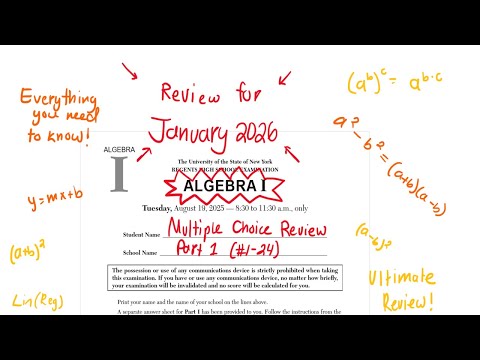 Review for
January 2026
Everything
you need
to know!
(a^b)^c = a^b·c
a² - b² = (a+b)(a-b)
ALGEBRA
I
The University of the State of New York
REGENTS HIGH SCHOOL EXAMINATION
ALGEBRA I
Tuesday, August 19, 2025 — 8:30 to 11:30 a.m., only
y=mx+b
Student Name Multiple Choice Review
School Name Part 1 (#1-24)
(a+b)²
(a-b)²
The possession or use of any communications device is strictly prohibited when taking
this examination. If you have or use any communications device, no matter how briefly,
your examination will be invalidated and no score will be calculated for you.
Ultimate
Review!
Lin(Reg)
Print your name and the name of your school on the lines above.
A separate answer sheet for Part I has been provided to you. Follow the instructions from the